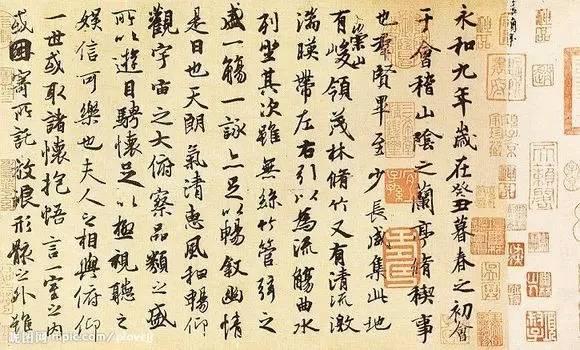 永和九年歲在癸丑暮春之初會
于會稽山陰之蘭亭脩稧事
也群賢畢至少長咸集此地
有崇山峻領茂林脩竹又有清流激
湍暎帶左右引以為流觴曲水
列坐其次雖無絲竹管弦之
盛一觴一詠亦足以暢敘幽情
是日也天朗氣清惠風和暢仰
觀宇宙之大俯察品類之盛
所以遊目騁懷足以極視聽之
娛信可樂也夫人之相與俯仰
一世或取諸懷抱悟言一室之內
或因寄所託放浪形骸之外雖
昵图网